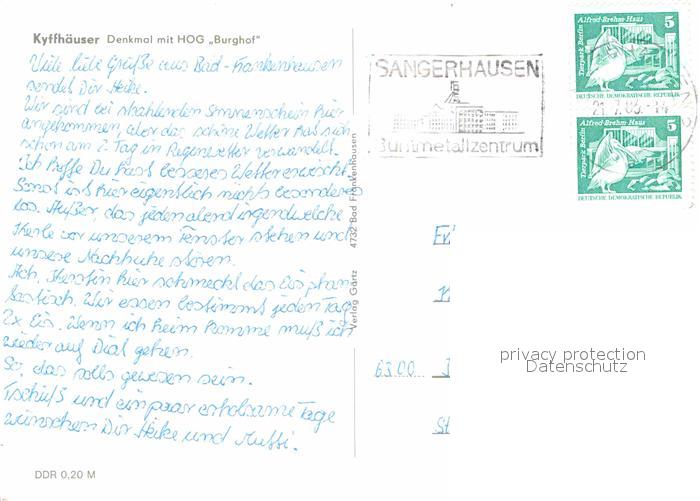 Kyffhäuser Denkmal mit HOG „Burghof"
Viele liebe Grüße aus Bad-Frankenhausen
sendet Dir Heike.
Wir sind bei strahlendem Sonnenschein hier
angekommen, aber das schöne Wetter hat sich
schon am 2. Tag in Regenwetter verwandelt.
Ich hoffe Du hast besseres Wetter erwischt.
Sonst ist hier eigentlich nichts besonderes
los. Außer, das jeden abend irgendwelche
Kerle vor unserem Fenster stehen und
unsere Nachtruhe stören.
Ach, Kerstin hier schmeckt das Eis phan-
tastisch. Wir essen bestimmt jeden Tag
2x Eis. Wenn ich heim komme muß ich
wieder auf Diät gehen.
So, das solls gewesen sein.
Tschüß und ein paar erholsame Tage
wünschen Dir Heike und Mutti.
DDR 0,20 M
Verlag Gärtz 4732 Bad Frankenhausen
SANGERHAUSEN
Buntmetallzentrum
Alfred-Brehm-Haus 5
Tierpark Berlin
DEUTSCHE DEMOKRATISCHE REPUBLIK
Alfred-Brehm-Haus 5
Tierpark Berlin
DEUTSCHE DEMOKRATISCHE REPUBLIK
6300
St
privacy protection
Datenschutz